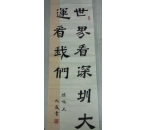 世界看深圳大
運看我們